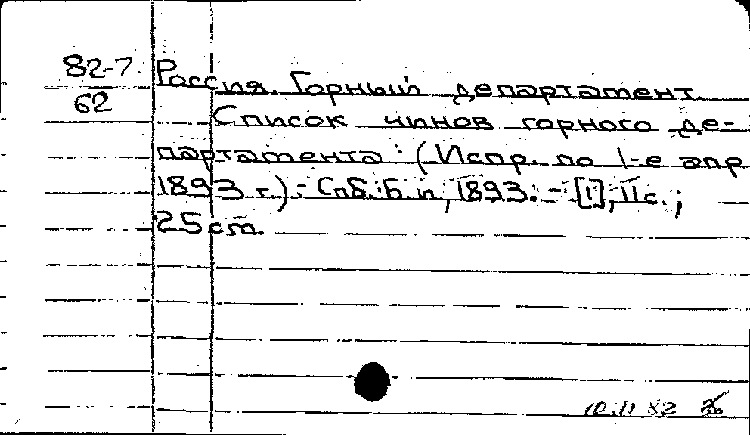 82-7
62
Россия. Горный департамент.
Список чинов горного де-
партамента: (Испр. по 1-е апр.
1893 г.).- Спб.: Б.и., 1893. - [1], 11 с.;
25 см.
10.11 82